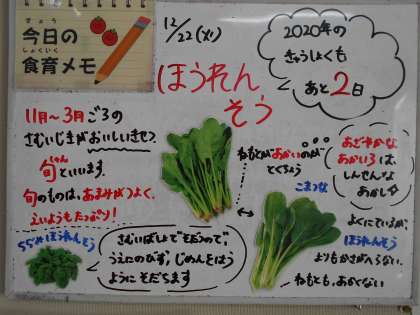 きょう
今日の
しょくいく
食育メモ
12/22(火)
ほうれん
そう
2020年の
きゅうしょくも
あと2日
11月〜3月ごろの
さむいじきがおいしいきせつ
しゅん
旬といいます。
旬のものは、あまみがつよく、
えいようもたっぷり!
ちぢみほうれんそう
さむいばしょで"そだつので、
うえにのびず、じめんをはう
ようにそだちます
ねもとがあかいのが
とくちょう
あざやかな
あかいろは、
しんせんな
あかし☆
こまつな
よくにているが、
ほうれんそう
よりもかさがへらない。
ねもともあかくない